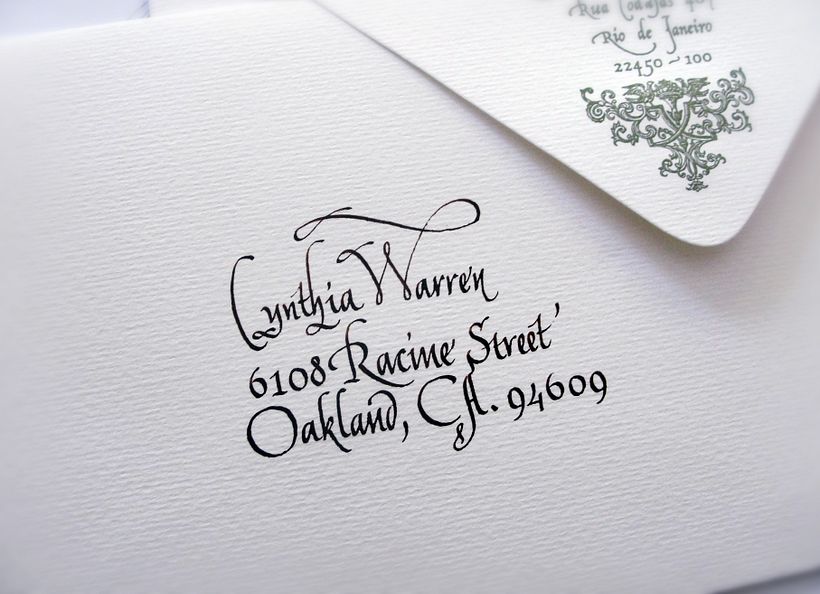 Rua
Rio de Janeiro
22450-100
Cynthia Warren
6108 Racine Street
Oakland, CA. 94609